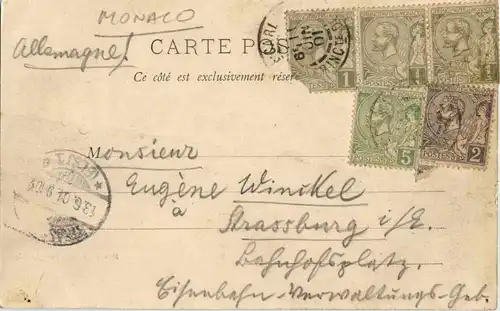 MONACO
Allemagne!
CARTE POS
Ce côté est exclusivement réser
1
1
1
POSTES
5
POSTES
2
Monsieur
Eugène Winckel
à
Strassburg i/E.
Bahnhofsplatz.
Eisenbahn-Verwaltungs-Geb.